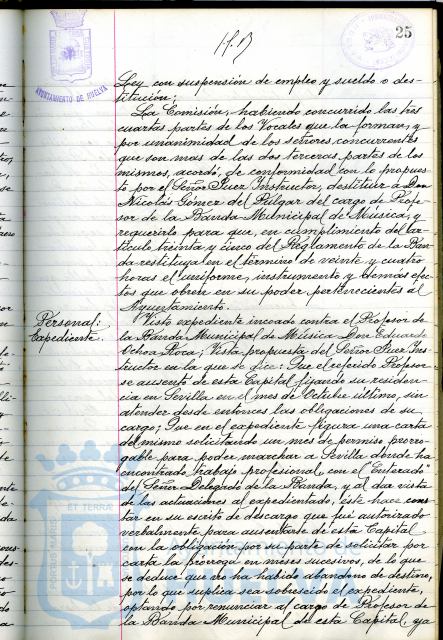 25
AYUNTAMIENTO DE HUELVA
Ley con suspensión de empleo y sueldo o des-
titución;
La Comisión, habiendo concurrido las tres
cuartas partes de los Vocales que la forman, y
por unanimidad de los señores concurrentes
que son mas de las dos terceras partes de los
mismos, acordó, de conformidad con lo propues-
to por el Señor Juez Instructor, destituir á Don
Nicolás Gómez del Pulgar del cargo de Profe-
sor de la Banda Municipal de Música, y
requerirlo para que, en cumplimiento del ar-
tículo treinta y cinco del Reglamento de la Ban-
da restituya en el término de veinte y cuatro
horas el uniforme, instrumento y demás efec-
tos que obren en su poder pertenecientes al
Ayuntamiento.
Personal:
Expediente.
Visto expediente incoado contra el Profesor de
la Banda Municipal de Música Don Eduardo
Ochoa Roca; Vista propuesta del Señor Juez Ins-
tructor en la que se dice: Que el referido Profesor
se ausentó de esta Capital fijando su residen-
cia en Sevilla en el mes de Octubre último, sin
atender desde entonces las obligaciones de su
cargo; Que en el expediente figura una carta
del mismo solicitando un mes de permiso prorro-
gable para poder marchar a Sevilla donde ha
encontrado trabajo profesional, con el "Enterado"
del Señor Delegado de la Banda, y al dar vista
de las actuaciones al expedientado, este hace cons
tar en su escrito de descargo que fué autorizado
verbalmente para ausentarse de esta Capital
con la obligación por su parte de solicitar por
carta la prórroga en meses sucesivos, de lo que
se deduce que no ha habido abandono de destino,
por lo que suplica sea sobreseido el expediente,
optando por renunciar al cargo de Profesor de
la Banda Municipal de esta Capital, ya
PORTUS MARIS ET TERRÆ